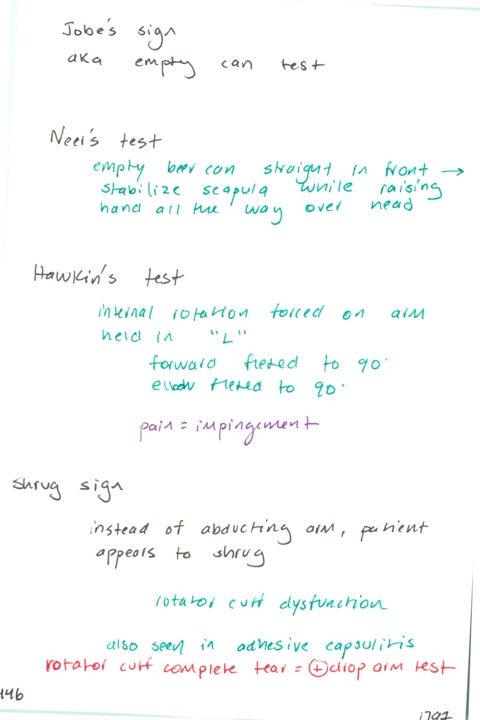 Jobe's sign
aka empty can test
Neer's test
empty beer can straight in front →
stabilize scapula while raising
hand all the way over head
Hawkin's test
internal rotation forced on arm
held in "L"
forward flexed to 90°
elbow flexed to 90°
pain = impingement
shrug sign
instead of abducting arm, patient
appears to shrug
rotator cuff dysfunction
also seen in adhesive capsulitis
rotator cuff complete tear = ⊕ drop arm test